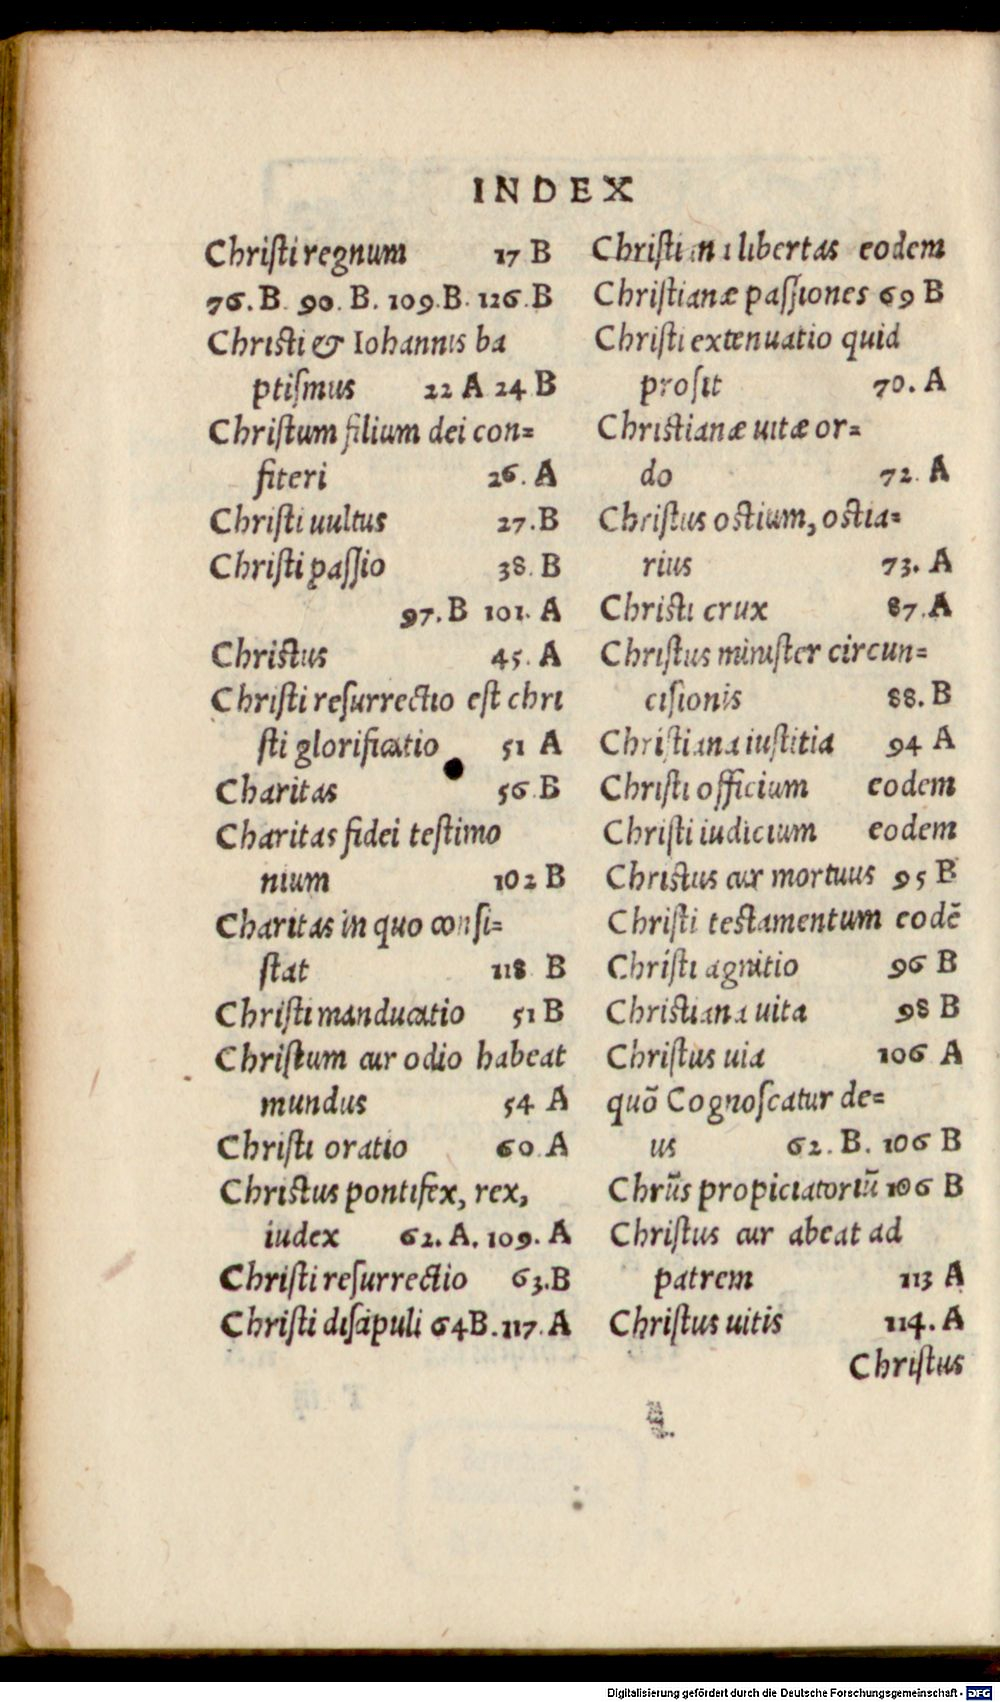 INDEX
Christi regnum 17 B
76. B. 90. B. 109. B. 126. B
Christi & Iohannis ba
ptismus 22 A 24 B
Christum filium dei con=
fiteri 26. A
Christi uultus 27. B
Christi passio 38. B
97. B 101. A
Christus 45. A
Christi resurrectio est chri
sti glorificatio 51 A
Charitas 56 B
Charitas fidei testimo
nium 102 B
Charitas in quo consi=
stat 118 B
Christi manducatio 51 B
Christum cur odio habeat
mundus 54 A
Christi oratio 60. A
Christus pontifex, rex,
iudex 62. A. 109. A
Christi resurrectio 63. B
Christi discipuli 64 B. 117. A
Christiana libertas eodem
Christianæ passiones 69 B
Christi extenuatio quid
prosit 70. A
Christianæ uitæ or=
do 72. A
Christus ostium, ostia=
rius 73. A
Christi crux 87. A
Christus minister circun=
cisionis 88. B
Christiana iustitia 94 A
Christi officium eodem
Christi iudicium eodem
Christus cur mortuus 95 B
Christi testamentum eodē
Christi agnitio 96 B
Christiana uita 98 B
Christus uia 106 A
quō Cognoscatur de=
us 62. B. 106 B
Chrūs propiciatoriū 106 B
Christus cur abeat ad
patrem 113 A
Christus uitis 114. A
Christus
Digitalisierung gefördert durch die Deutsche Forschungsgemeinschaft - DFG